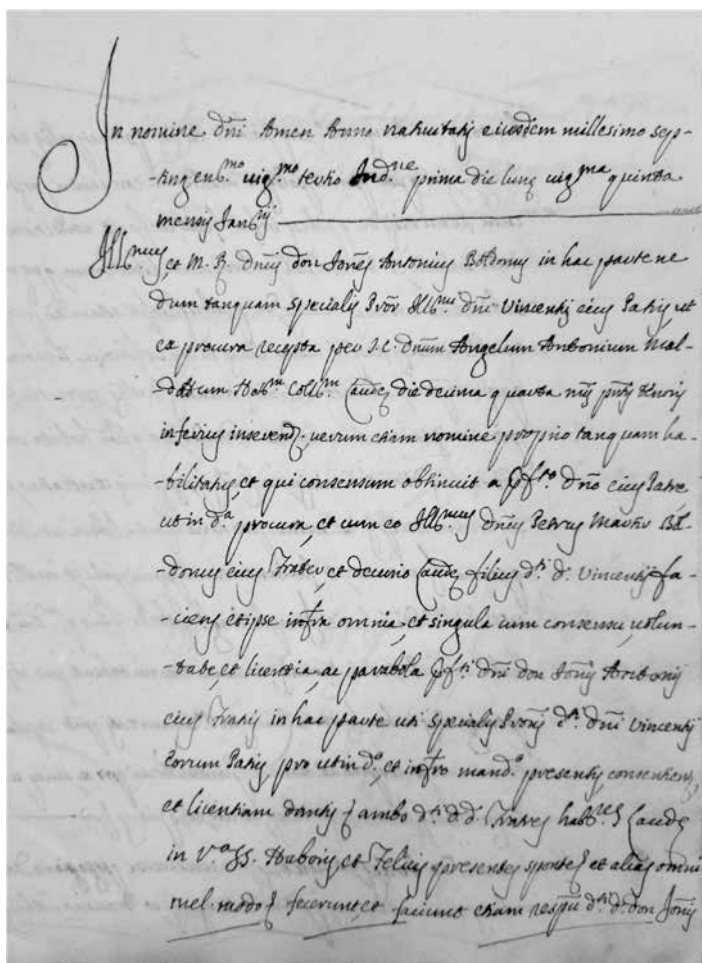 In nomine dñi Amen Anno nativitatis eiusdem millesimo sep-
-tingen.mo vig.mo tertio Ind.ne prima die lune vig.ma quinta
mensis Jan.rij
Ill.mus et M. R. dñus don Joñes Antonius in hac parte ne
dum tanquam specialis Pror Ill.mi dñi Vincentij eius Patris ut
ex procura recepta per J.C. dñum Angelum Antonium Mal-
-datum Not.m Coll.m Laudę die decima quarta
inferius inserend. verum etiam nomine proprio tanquam ha-
-bilitatus, et qui consensum obtinuit a pf.to dño eius Patre
ut in d.a procura, et cum eo Ill.mus dñus Petrus Martir
-donus eius Frater, et decurio Laudę filius d.ti d. Vincentij fa-
-ciens et ipse infra omnia, et singula cum consensu, volun-
-tate, et licentia, ac parabola pf.ti dñi don Joñis Antonij
eius Fratris in hac parte uti specialis Proris d.ti dñi Vincentij
eorum Patris, pro ut in d.o, et infro mand.o presentis consentiens,
et licentiam dantis ambo d.ti d. d. Fratres hab.res Laudę
in V.a SS. Naboris, et Felicis presentes sponte et alias omni
mel. modo fecerunt, et faciunt etiam respu d.ti d. don Joñis